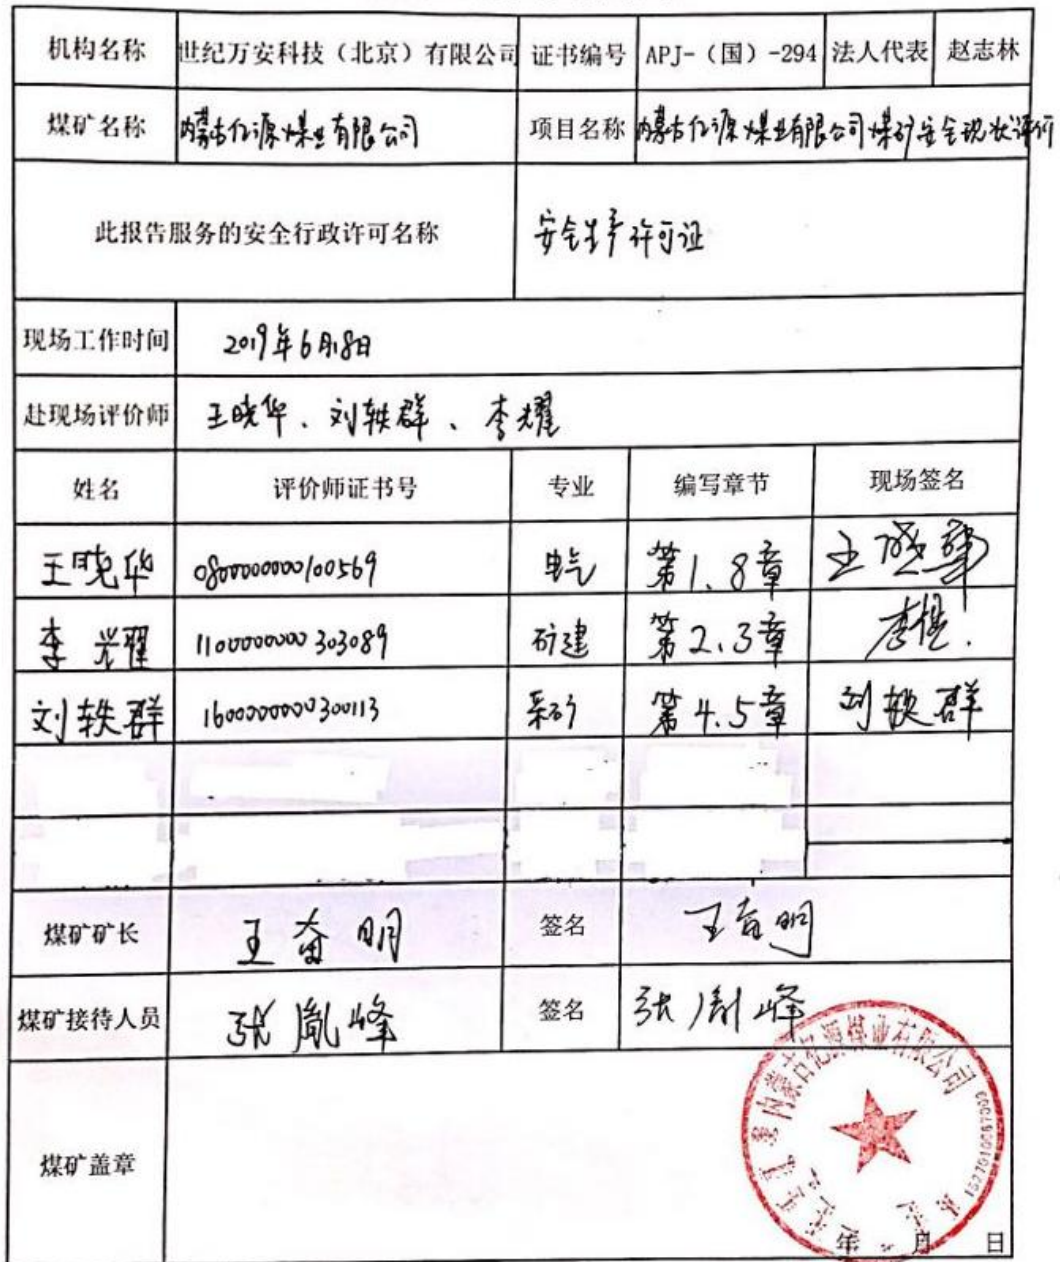 机构名称 世纪万安科技（北京）有限公司 证书编号 APJ-（国）-294 法人代表 赵志林
煤矿名称 内蒙古亿源煤业有限公司 项目名称 内蒙古亿源煤业有限公司煤矿安全现状评价
此报告服务的安全行政许可名称 安全生产许可证
现场工作时间 2019年6月18日
赴现场评价师 王晓华、刘轶群、李耀
姓名 评价师证书号 专业 编写章节 现场签名
王晓华 0800000000100569 电气 第1.8章 王晓华
李耀 1100000000303089 矿建 第2.3章
刘轶群 1600000000300113 采矿 第4.5章 刘轶群
煤矿矿长 王奋明 签名 王奋明
煤矿接待人员 张胤峰 签名 张胤峰
内蒙古亿源煤业有限公司
煤矿盖章
年 月 日